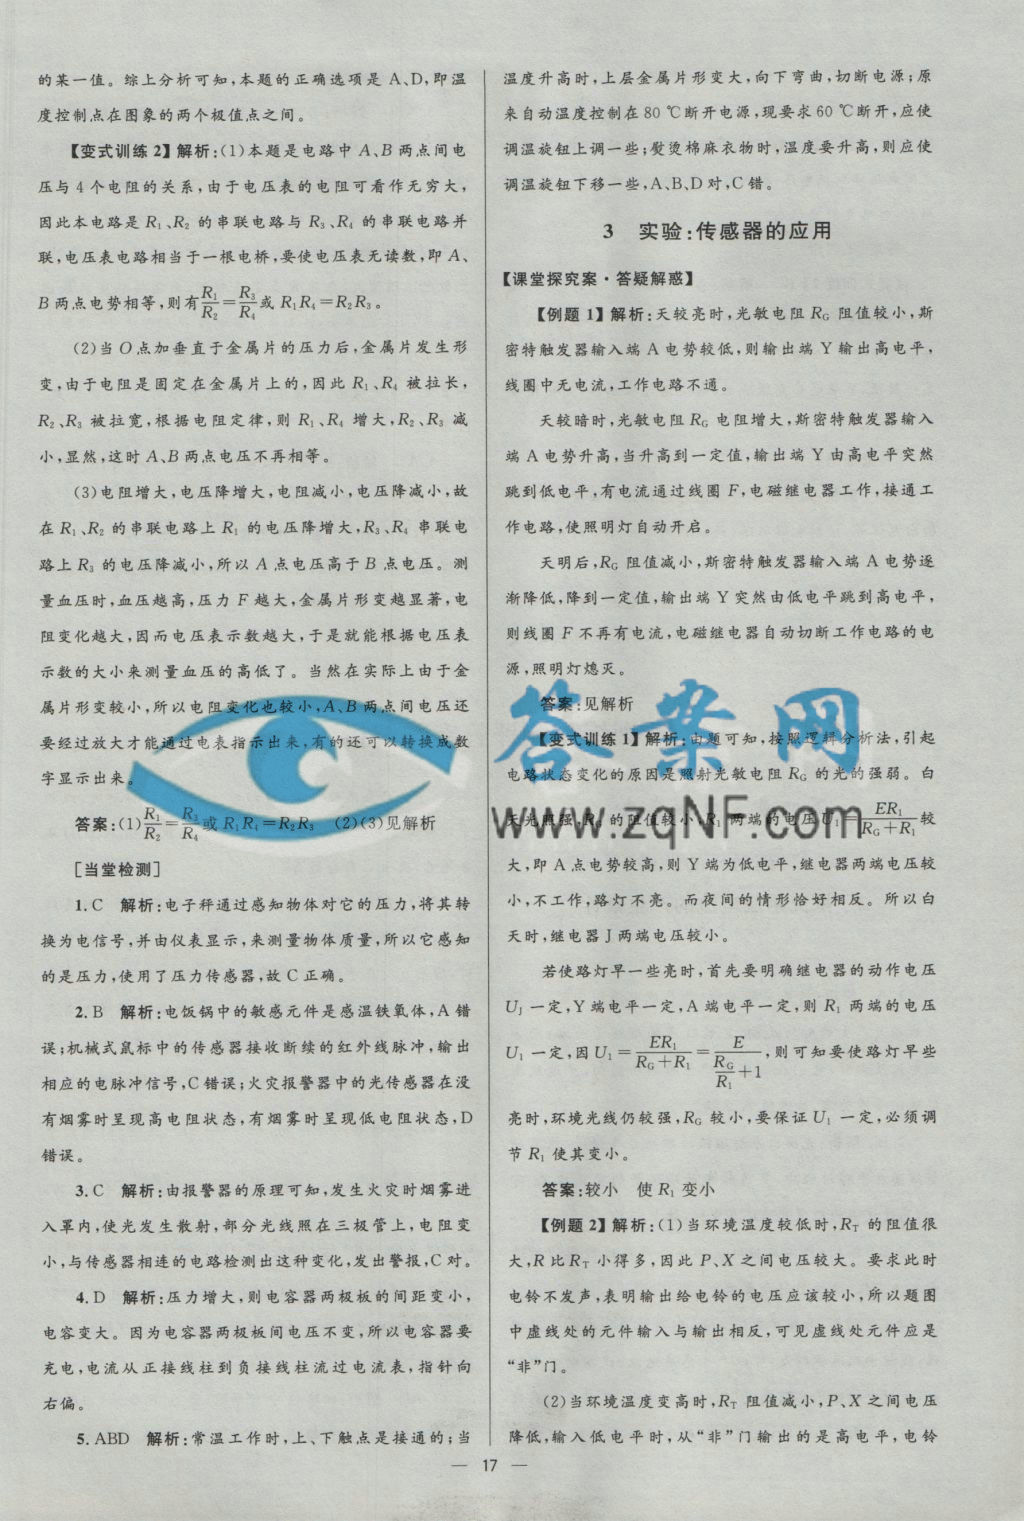 的某一值。综上分析可知,本题的正确选项是 A、D,即温
度控制点在图象的两个极值点之间。
【变式训练2】解析:(1)本题是电路中 A、B 两点间电
压与 4 个电阻的关系,由于电压表的电阻可看作无穷大,
因此本电路是 R₁、R₂ 的串联电路与 R₃、R₄ 的串联电路并
联,电压表电路相当于一根电桥,要使电压表无读数,即 A、
B 两点电势相等,则有R₁/R₂=R₃/R₄或 R₁R₄=R₂R₃。
(2)当 O 点加垂直于金属片的压力后,金属片发生形
变,由于电阻是固定在金属片上的,因此 R₁、R₄ 被拉长,
R₂、R₃ 被拉宽,根据电阻定律,则 R₁、R₄ 增大,R₂、R₃ 减
小,显然,这时 A、B 两点电压不再相等。
(3)电阻增大,电压降增大,电阻减小,电压降减小,故
在 R₁、R₂ 的串联电路上 R₁ 的电压降增大,R₃、R₄ 串联电
路上 R₃ 的电压降减小,所以 A 点电压高于 B 点电压。测
量血压时,血压越高,压力 F 越大,金属片形变越显著,电
阻变化越大,因而电压表示数越大,于是就能根据电压表
示数的大小来测量血压的高低了。当然在实际上由于金
属片形变较小,所以电阻变化也较小,A、B 两点间电压还
要经过放大才能通过电表指示出来,有的还可以转换成数
字显示出来。
答案:(1)R₁/R₂=R₃/R₄或 R₁R₄=R₂R₃ (2)(3)见解析
[当堂检测]
1.C 解析:电子秤通过感知物体对它的压力,将其转
换为电信号,并由仪表显示,来测量物体质量,所以它感知
的是压力,使用了压力传感器,故 C 正确。
2.B 解析:电饭锅中的敏感元件是感温铁氧体,A 错
误;机械式鼠标中的传感器接收断续的红外线脉冲,输出
相应的电脉冲信号,C 错误;火灾报警器中的光传感器在没
有烟雾时呈现高电阻状态,有烟雾时呈现低电阻状态,D
错误。
3.C 解析:由报警器的原理可知,发生火灾时烟雾进
入罩内,使光发生散射,部分光线照在三极管上,电阻变
小,与传感器相连的电路检测出这种变化,发出警报,C 对。
4.D 解析:压力增大,则电容器两极板的间距变小,
电容变大。因为电容器两极板间电压不变,所以电容器要
充电,电流从正接线柱到负接线柱流过电流表,指针向
右偏。
5.ABD 解析:常温工作时,上、下触点是接通的;当
温度升高时,上层金属片形变大,向下弯曲,切断电源;原
来自动温度控制在 80 ℃断开电源,现要求 60 ℃断开,应使
调温旋钮上调一些;熨烫棉麻衣物时,温度要升高,则应使
调温旋钮下移一些,A、B、D 对,C 错。
3 实验:传感器的应用
【课堂探究案·答疑解惑】
【例题1】解析:天较亮时,光敏电阻 R_G 阻值较小,斯
密特触发器输入端 A 电势较低,则输出端 Y 输出高电平,
线圈中无电流,工作电路不通。
天较暗时,光敏电阻 R_G 电阻增大,斯密特触发器输入
端 A 电势升高,当升高到一定值,输出端 Y 由高电平突然
跳到低电平,有电流通过线圈 F,电磁继电器工作,接通工
作电路,使照明灯自动开启。
天明后,R_G 阻值减小,斯密特触发器输入端 A 电势逐
渐降低,降到一定值,输出端 Y 突然由低电平跳到高电平,
则线圈 F 不再有电流,电磁继电器自动切断工作电路的电
源,照明灯熄灭。
答案:见解析
【变式训练1】解析:由题可知,按照逻辑分析法,引起
电路状态变化的原因是照射光敏电阻 R_G 的光的强弱。白
天光照强,R_G 的阻值较小,R₁ 两端的电压 U₁=ER₁/(R_G+R₁)较
大,即 A 点电势较高,则 Y 端为低电平,继电器两端电压较
小,不工作,路灯不亮。而夜间的情形恰好相反。所以白
天时,继电器 J 两端电压较小。
若使路灯早一些亮时,首先要明确继电器的动作电压
U_J 一定,Y 端电平一定,A 端电平一定,则 R₁ 两端的电压
U₁ 一定,因 U₁=ER₁/(R_G+R₁)=E/(R_G/R₁+1),则可知要使路灯早些
亮时,环境光线仍较强,R_G 较小,要保证 U₁ 一定,必须调
节 R₁ 使其变小。
答案:较小 使 R₁ 变小
【例题2】解析:(1)当环境温度较低时,R_T 的阻值很
大,R 比 R_T 小得多,因此 P、X 之间电压较大。要求此时
电铃不发声,表明输出给电铃的电压应该较小,所以题图
中虚线处的元件输入与输出相反,可见虚线处元件应是
“非”门。
(2)当环境温度变高时,R_T 阻值减小,P、X 之间电压
降低,输入低电平时,从“非”门输出的是高电平,电铃
— 17 —
答案网
www.zqNF.com